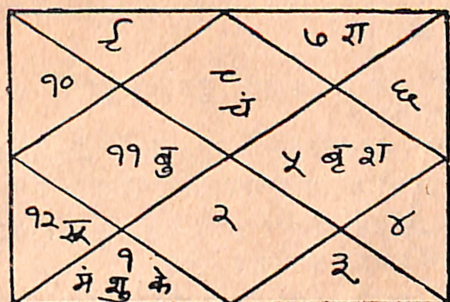 ९ ७ रा
१० ८ ६
चं
११ बु ५ बृ श
१२ सू २ ४
१ ३
मं शु के